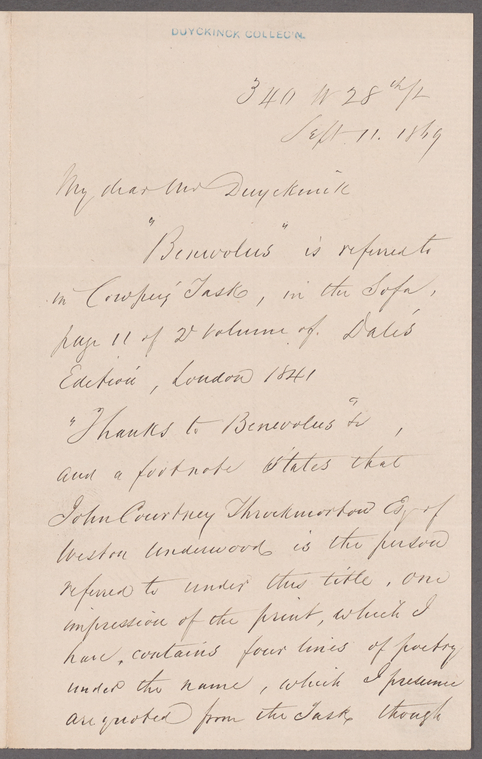 DUYCKINCK COLLEC'N.
340 W 28th St
Sept. 11. 1869
My dear Mr Duyckinck
"Benevolus" is referred to
in Cowper's Task, in the Sofa,
page 11 of 2d volume of Dale's
Edition, London 1841
"Thanks to Benevolus" &c,
and a footnote states that
John Courtney Throckmorton Esq of
Weston Underwood is the person
referred to under this title. One
impression of the print, which I
have, contains four lines of poetry
under the name, which I presume
are quoted from the Task though